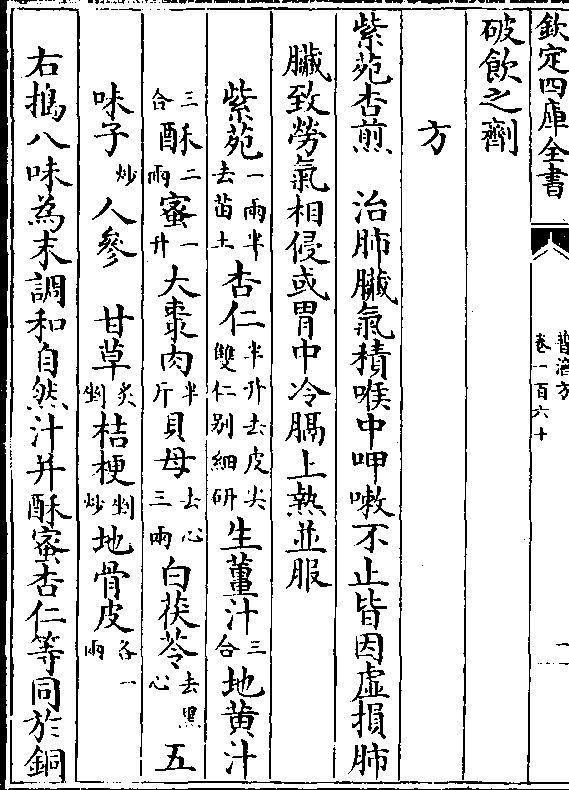 欽定四庫全書
普濟方
卷一百六十
一
破飲之劑
方
紫苑杏煎　治肺臟氣積喉中呷嗽不止皆因虛損肺
臟致勞氣相侵或胃中冷膈上熱並服
紫苑一兩半去苗土杏仁半升去皮尖雙仁别細研生薑汁三合地黄汁
三合酥二兩蜜一升大棗肉半斤貝母去心三兩白茯苓去黑心五
味子炒人參　甘草炙剉桔梗剉炒地骨皮各一兩
右搗八味為末調和自然汁并酥蜜杏仁等同於銅